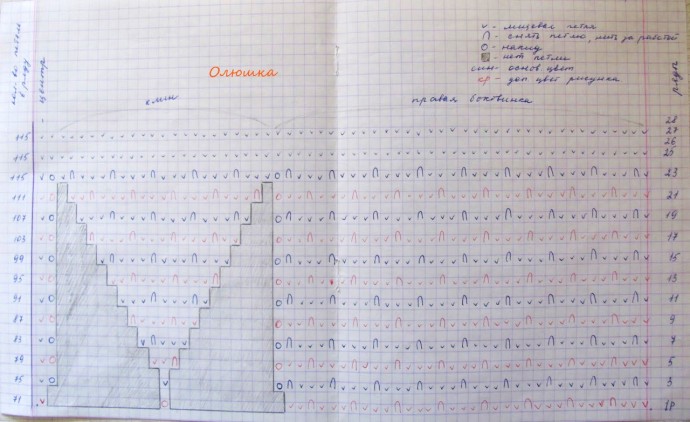 v - лицевая петля
∩ - снять петлю, нить за работой
O - накид
- нет петли
син - основ. цвет
кр - доп цвет рисунка
Олюшка
кол-во петель в ряду
центр
клин
правая боковинка
ряды
28
115 27
26
115 25
115 23
111 21
107 19
103 17
99 15
95 13
91 11
87 9
83 7
79 5
75 3
71 1р